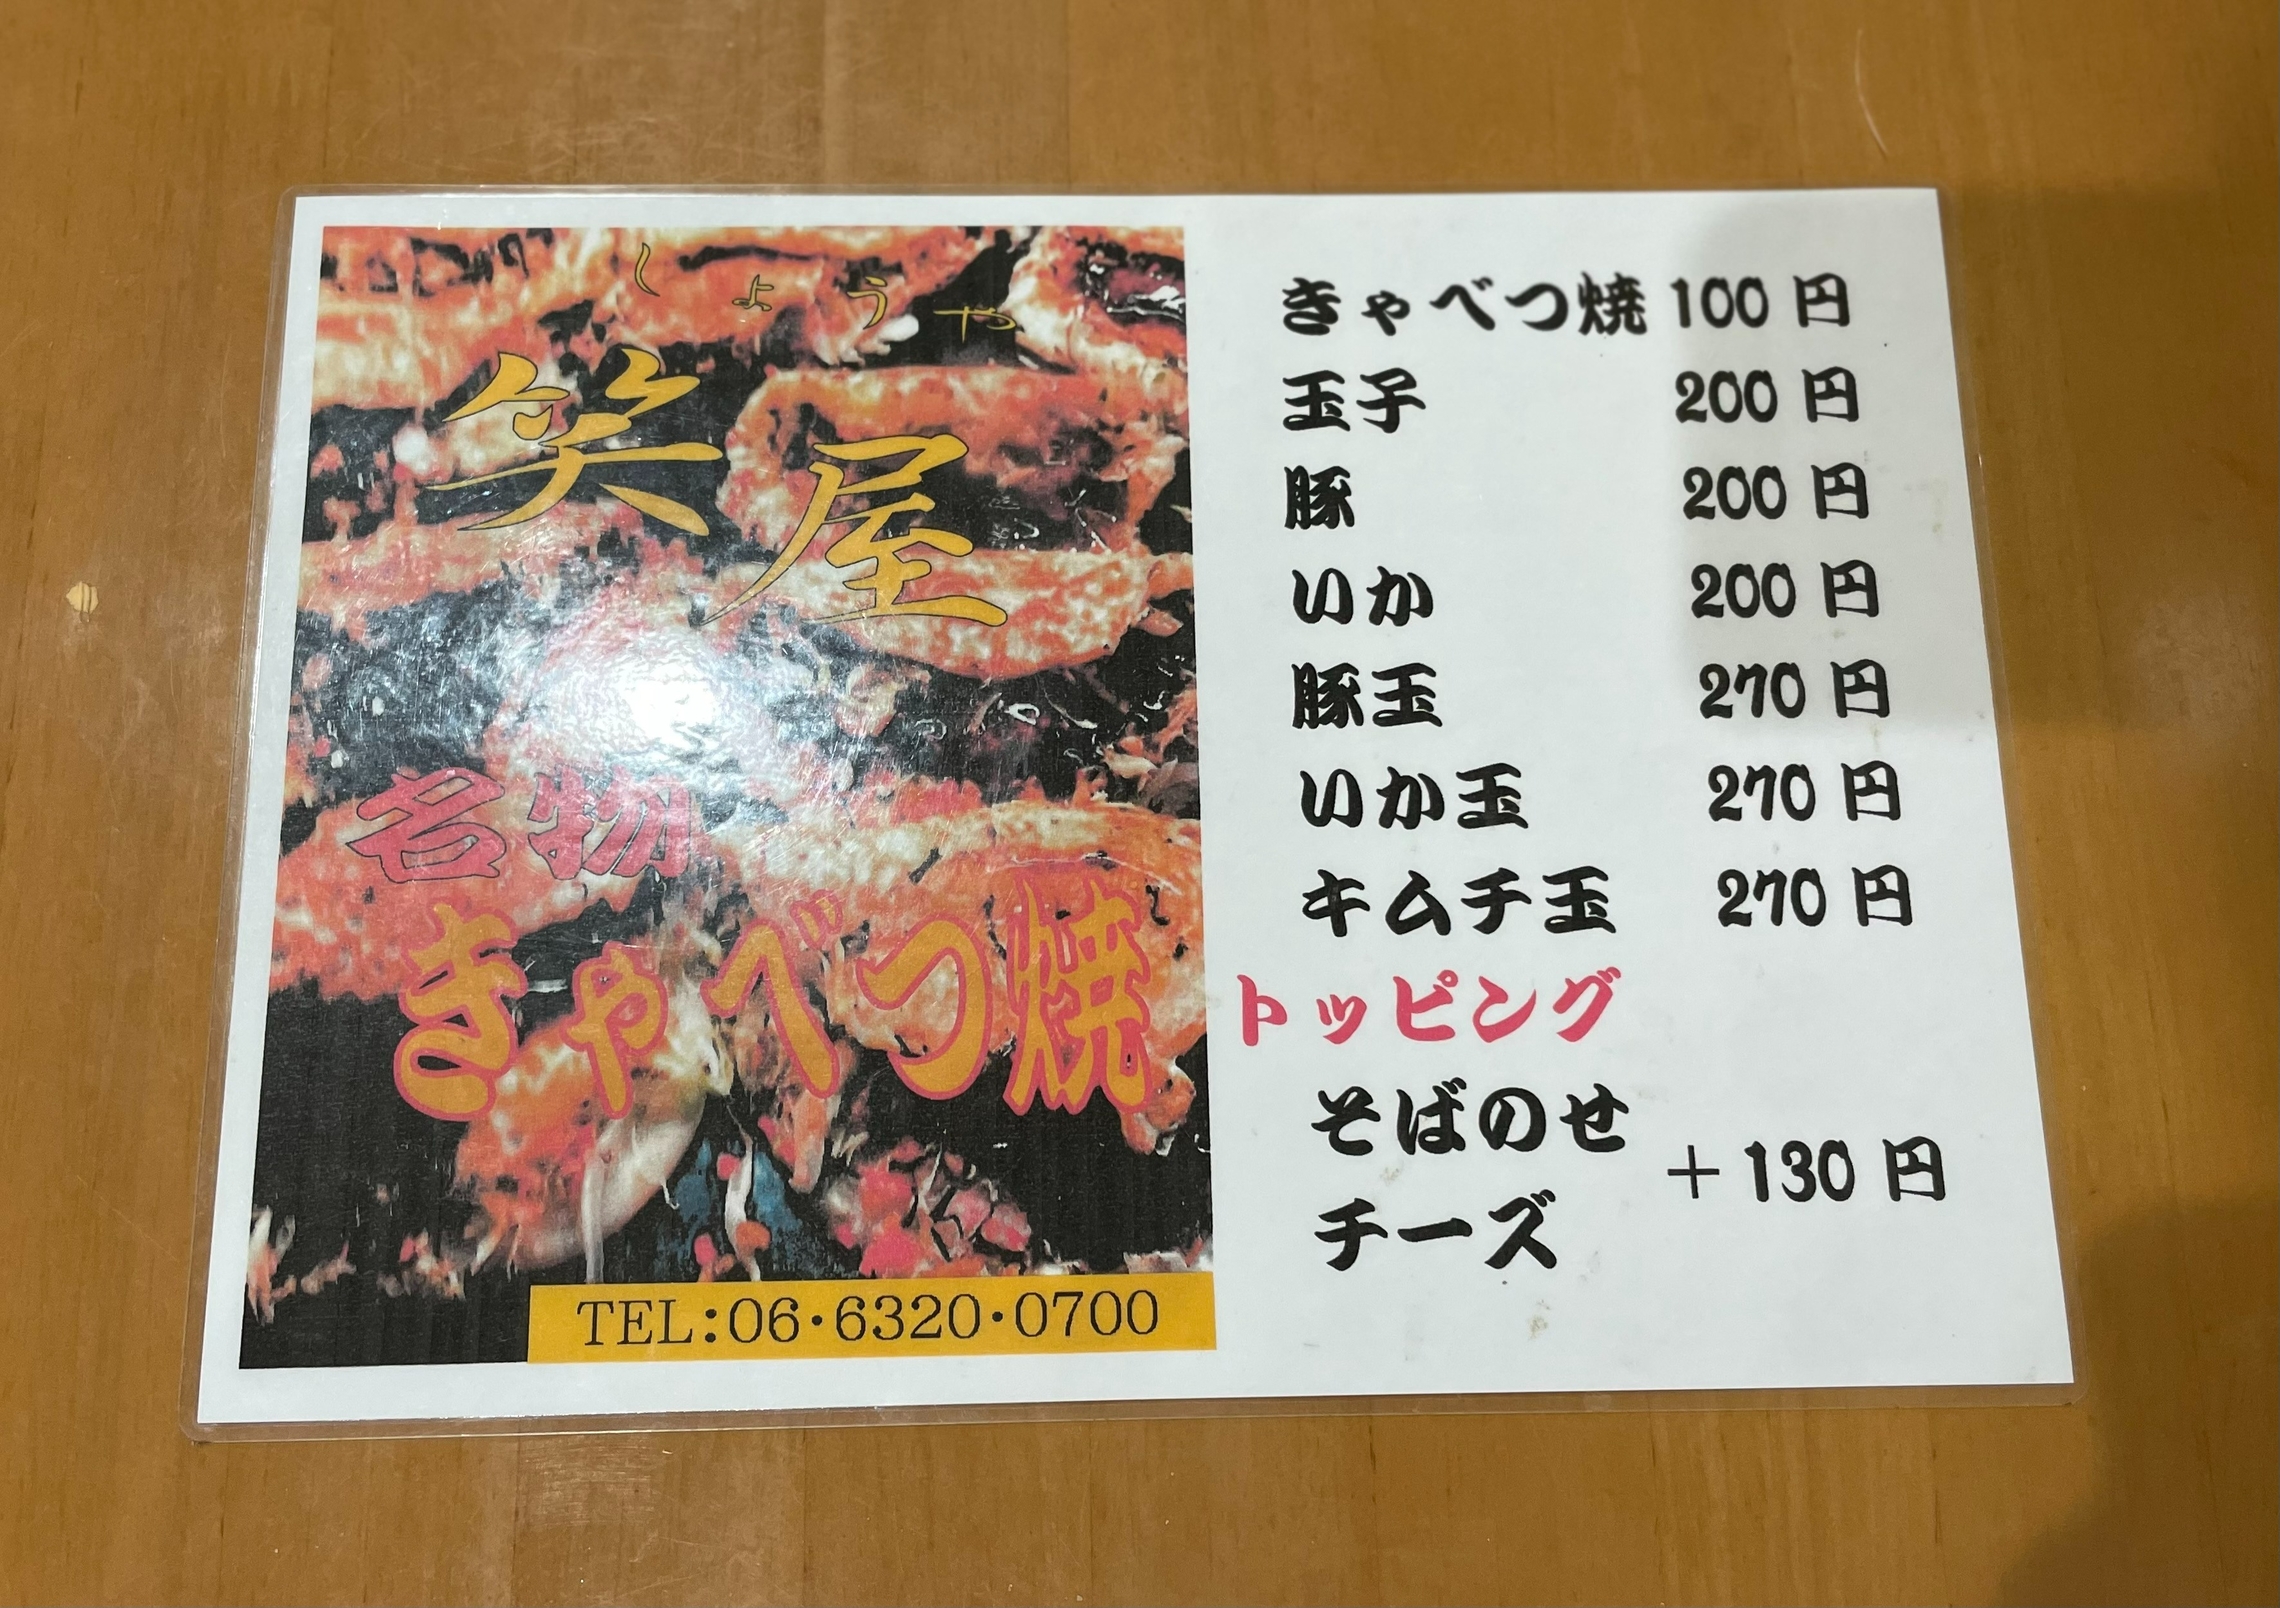 しょうや
笑屋
名物
きゃべつ焼
TEL:06・6320・0700
きゃべつ焼 100円
玉子 200円
豚 200円
いか 200円
豚玉 270円
いか玉 270円
キムチ玉 270円
トッピング
そばのせ
チーズ
+130円